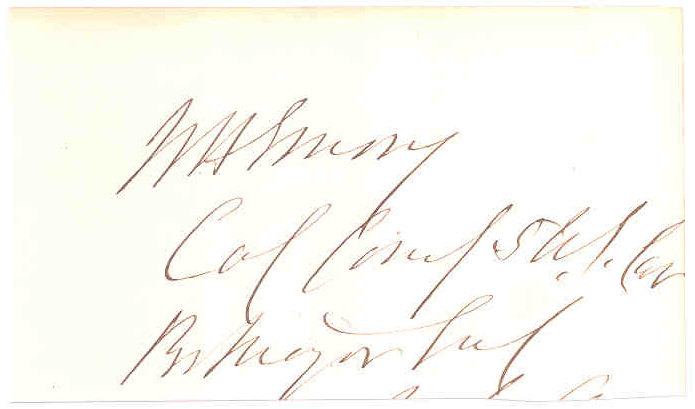 W H Emory
Col Comd 5 U.S. Cav
Bv Major Genl